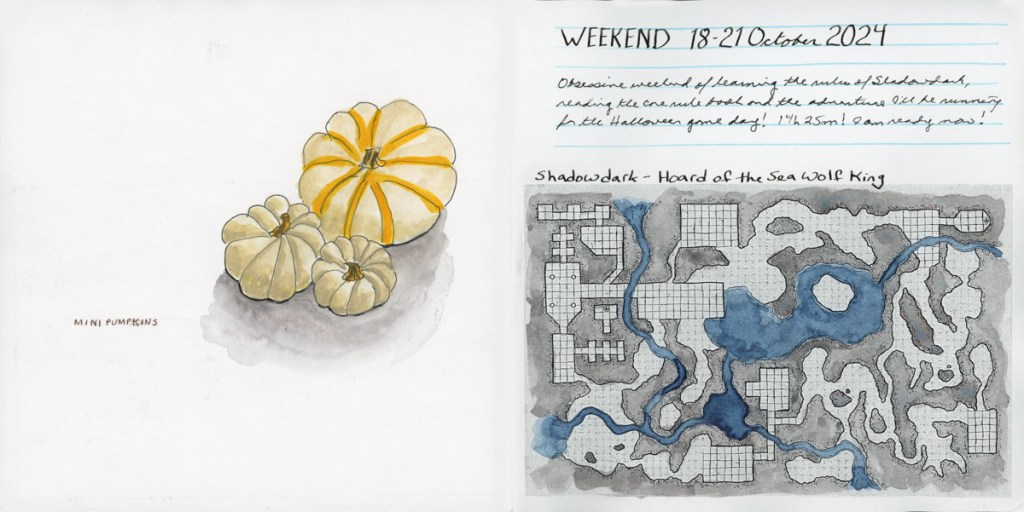 MINI PUMPKINS
WEEKEND 18-21 October 2024
Obsessive weekend of learning the rules of Shadowdark,
reading the core rule book and the adventure I'll be running
for the Halloween game day! 14h 25m! I am ready now!
Shadowdark - Hoard of the Sea Wolf King